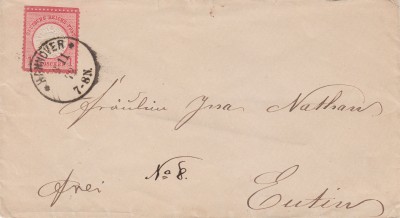 DEUTSCHE REICHS-POST
HANNOVER
11
7-8N.
Fräulein Ina Nathan
frei No 8. Eutin